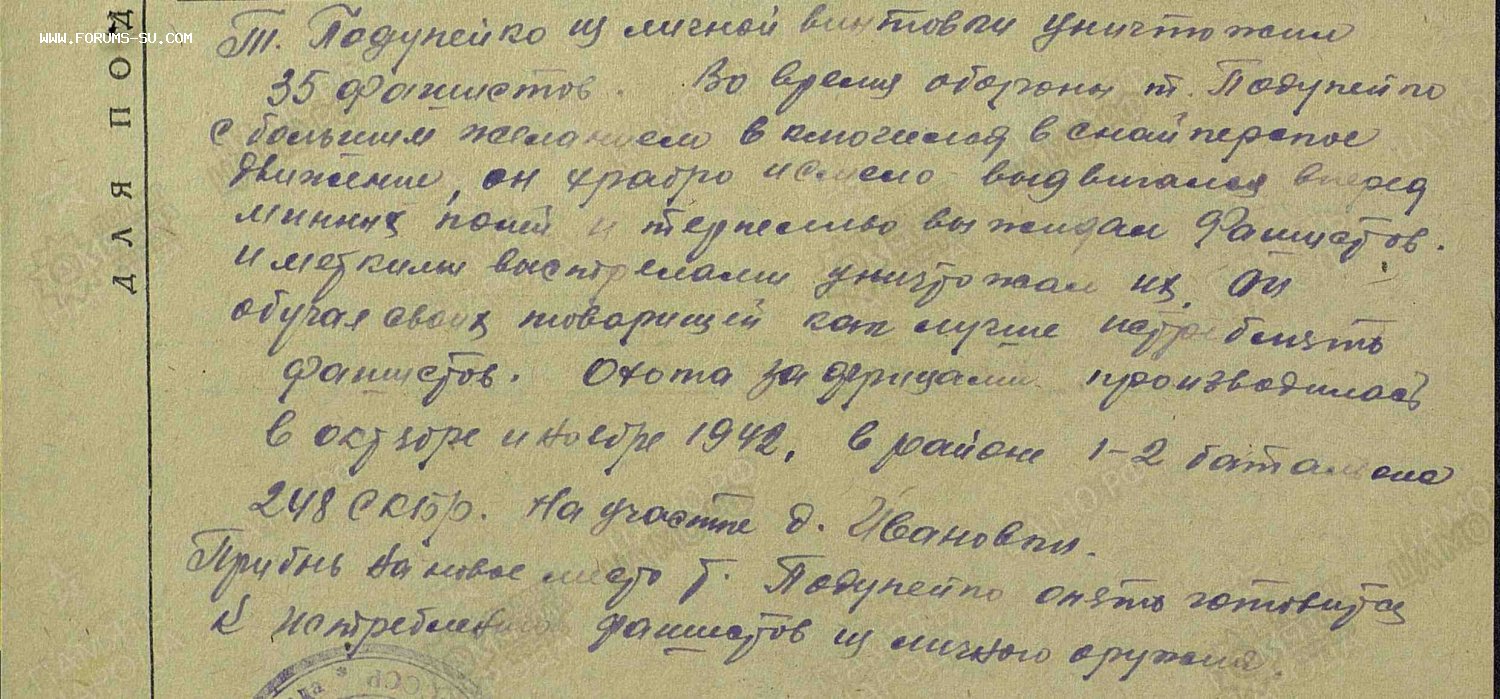 WWW.FORUMS-SU.COM
ДЛЯ ПОД
Т. Подупейко из личной винтовки уничтожил
35 фашистов. Во время обороны т. Подупейко
с большим желанием включился в снайперское
движение, он храбро и смело выдвигался вперед
минных полей и терпеливо выжидал фашистов.
и меткими выстрелами уничтожал их. Он
обучал своих товарищей как лучше истреблять
фашистов. Охота за фрицами производилась
в октябре и ноябре 1942, в районе 1-2 баталиона
248 СКБр. На участке д. Ивановки.
Прибыв на новое место т. Подупейко опять готовится
к истреблению фашистов из личного оружия.